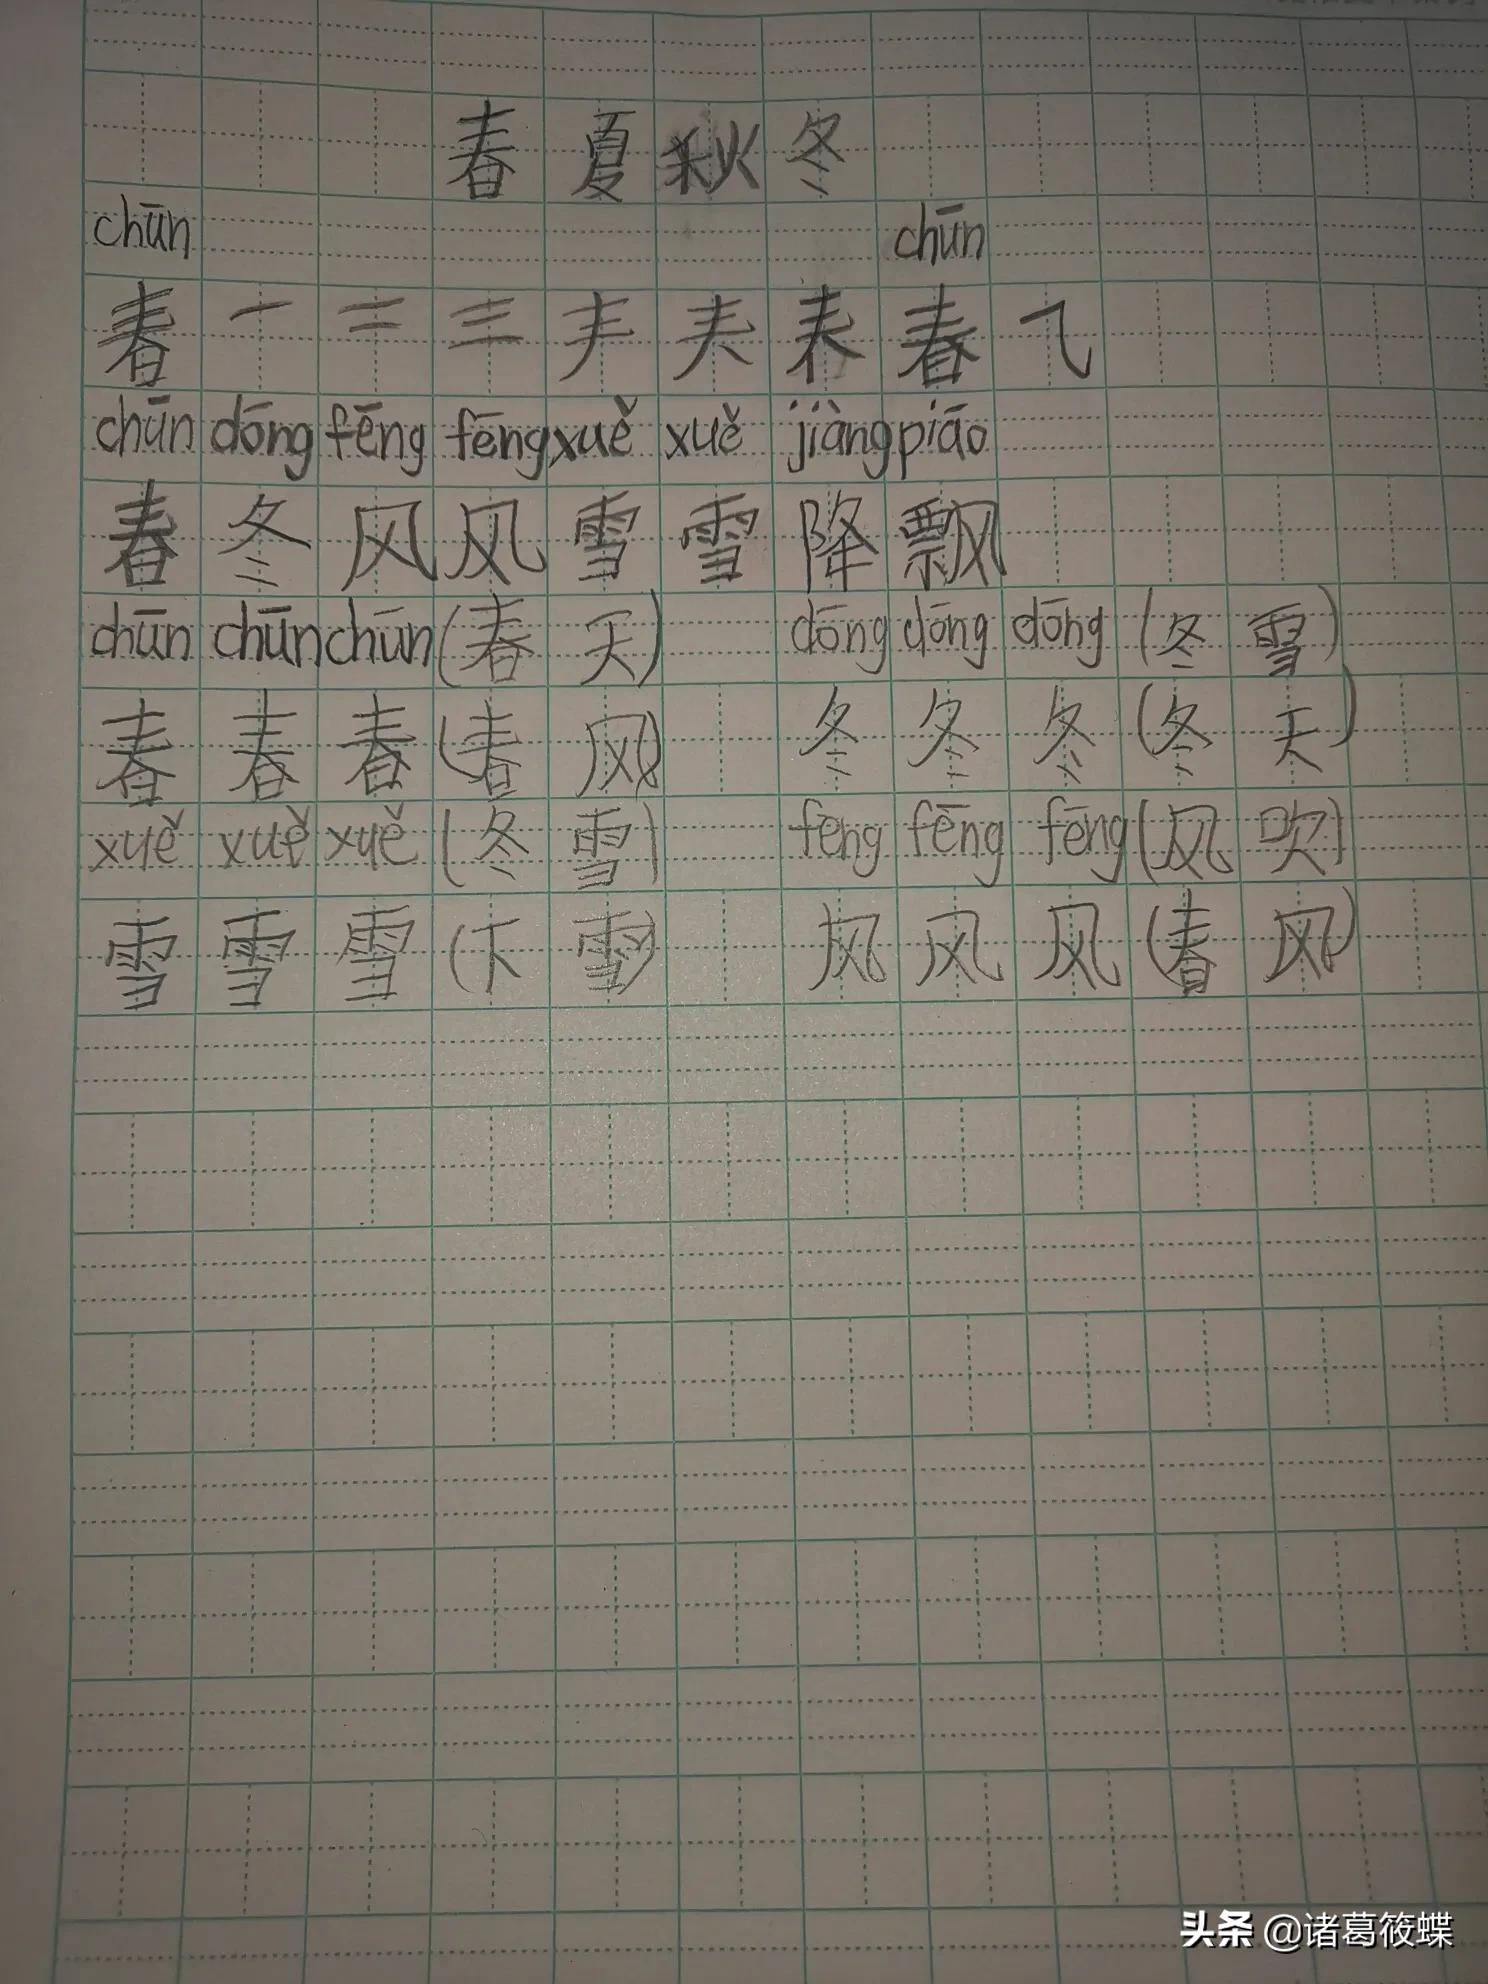 春夏秋冬
chūn chūn
春 一 二 三 𡗗 春 ㇈
chūn dōng fēng fēng xuě xuě jiàng piāo
春 冬 风 风 雪 雪 降 飘
chūn chūn chūn (春天) dōng dōng dōng (冬雪)
春 春 春 (春风) 冬 冬 冬 (冬天)
xuě xuě xuě (冬雪) fēng fēng fēng (风吹)
雪 雪 雪 (下雪) 风 风 风 (春风)
头条 @诸葛筱蝶